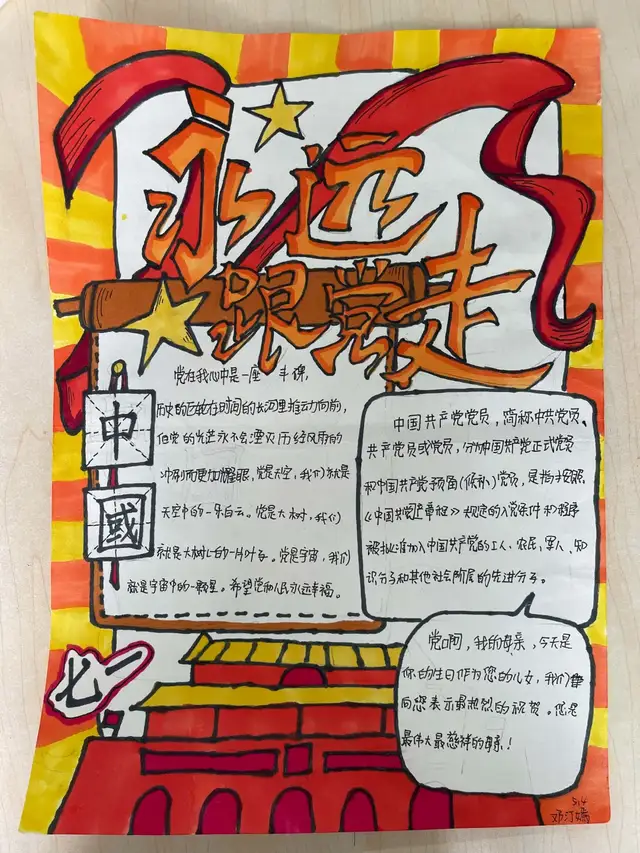 永远
跟党走
中
國
党在我心中是一座丰碑,
历史的在时间的长河里推动向前,
但党的光芒永不会湮灭历经风雨的
冲刷而更加耀眼,党是天空,我们就是
天空中的一朵白云。党是大树,我们
就是大树上的一片叶子。党是宇宙,我们
就是宇宙中的一颗星。希望党和人民永远幸福。
中国共产党党员,简称中共党员、
共产党员或党员,分为中国共产党正式党员
和中国共产党预备(候补)党员,是指按照
《中国共产党章程》规定的入党条件和程序
被批准加入中国共产党的工人、农民、军人、知
识分子和其他社会阶层的先进分子。
党啊,我的母亲,今天是
你的生日作为您的儿女,我们
向您表示最热烈的祝贺。您是
最伟大最慈祥的母亲!
七一
514
邓汀嫣